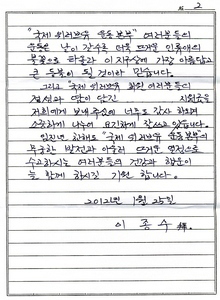 2
"국제 위러브유 운동본부" 여러분들의
운동은 날이 갈수록 더욱 뜨거운 인류애의
불꽃으로 타올라 이 지구상에 가장 아름답고
큰 등불이 될 것이라 믿습니다.
그리고 국제 위러브유 회원 여러분들이
정성와 땀이 담긴 지원금을
저희에게 보내주심에 너무도 감사 하오며
소중하게 나누어 요긴하게 잘쓰고 있습니다.
임진년 한해도 "국제 위러브유 운동본부"의
무궁한 발전과 아울러 뜨거운 열정으로
수고하시는 여러분들의 건강과 행운이
늘 함께 하시길 기원 합니다.
2012년 1월 25일
이 종 수